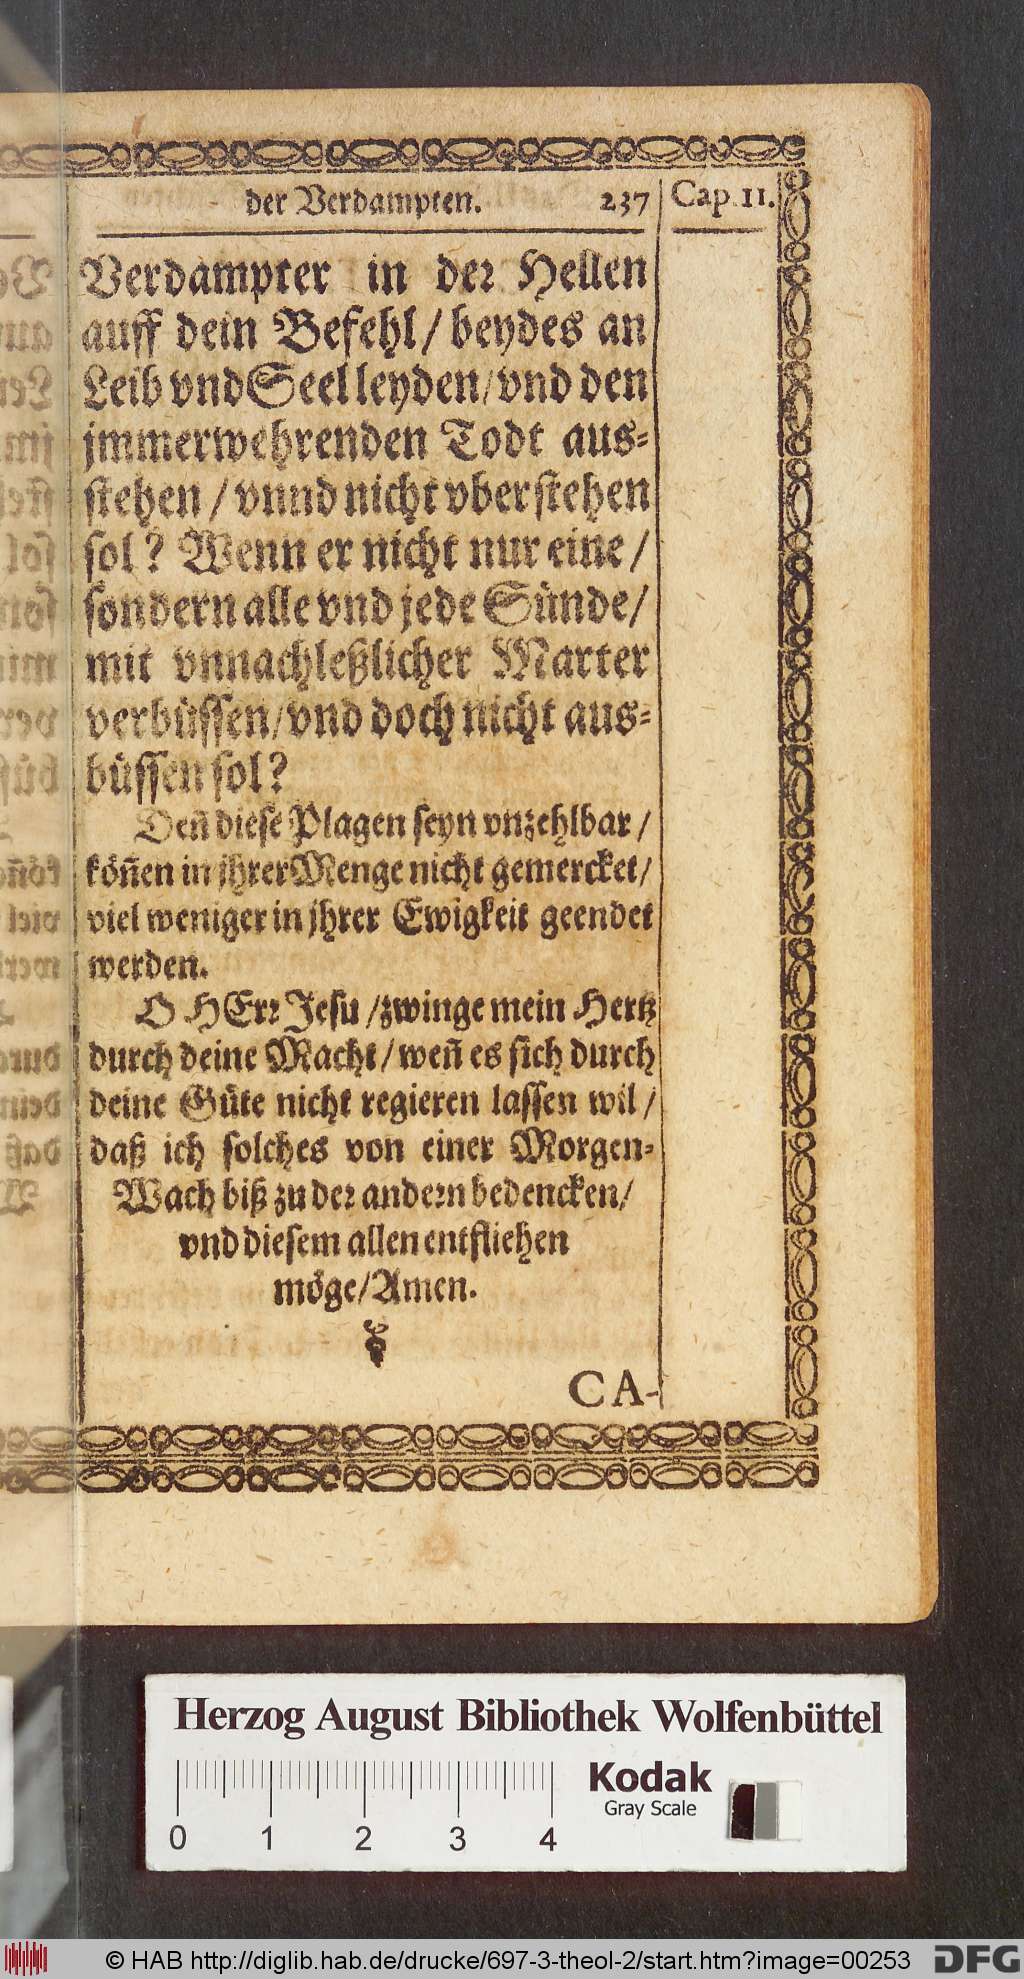 der Verdampten. 237 Cap. 11.
Verdampter in der Hellen
auff dein Befehl / beydes an
Leib vnd Seel leyden / vnd den
jmmerwehrenden Todt aus-
stehen / vnnd nicht vberstehen
sol? Wenn er nicht nur eine /
sondern alle vnd jede Sünde /
mit vnnachleßlicher Marter
verbüssen / vnd doch nicht aus-
büssen sol?
Deñ diese Plagen seyn vnzehlbar /
köñen in jhrer Menge nicht gemercket /
viel weniger in jhrer Ewigkeit geendet
werden.
O HErr Jesu / zwinge mein Hertz
durch deine Macht / weñ es sich durch
deine Güte nicht regieren lassen wil /
daß ich solches von einer Morgen-
Wach biß zu der andern bedencken /
vnd diesem allen entfliehen
möge / Amen.
CA-
Herzog August Bibliothek Wolfenbüttel
Kodak
Gray Scale
0 1 2 3 4
© HAB http://diglib.hab.de/drucke/697-3-theol-2/start.htm?image=00253
DFG